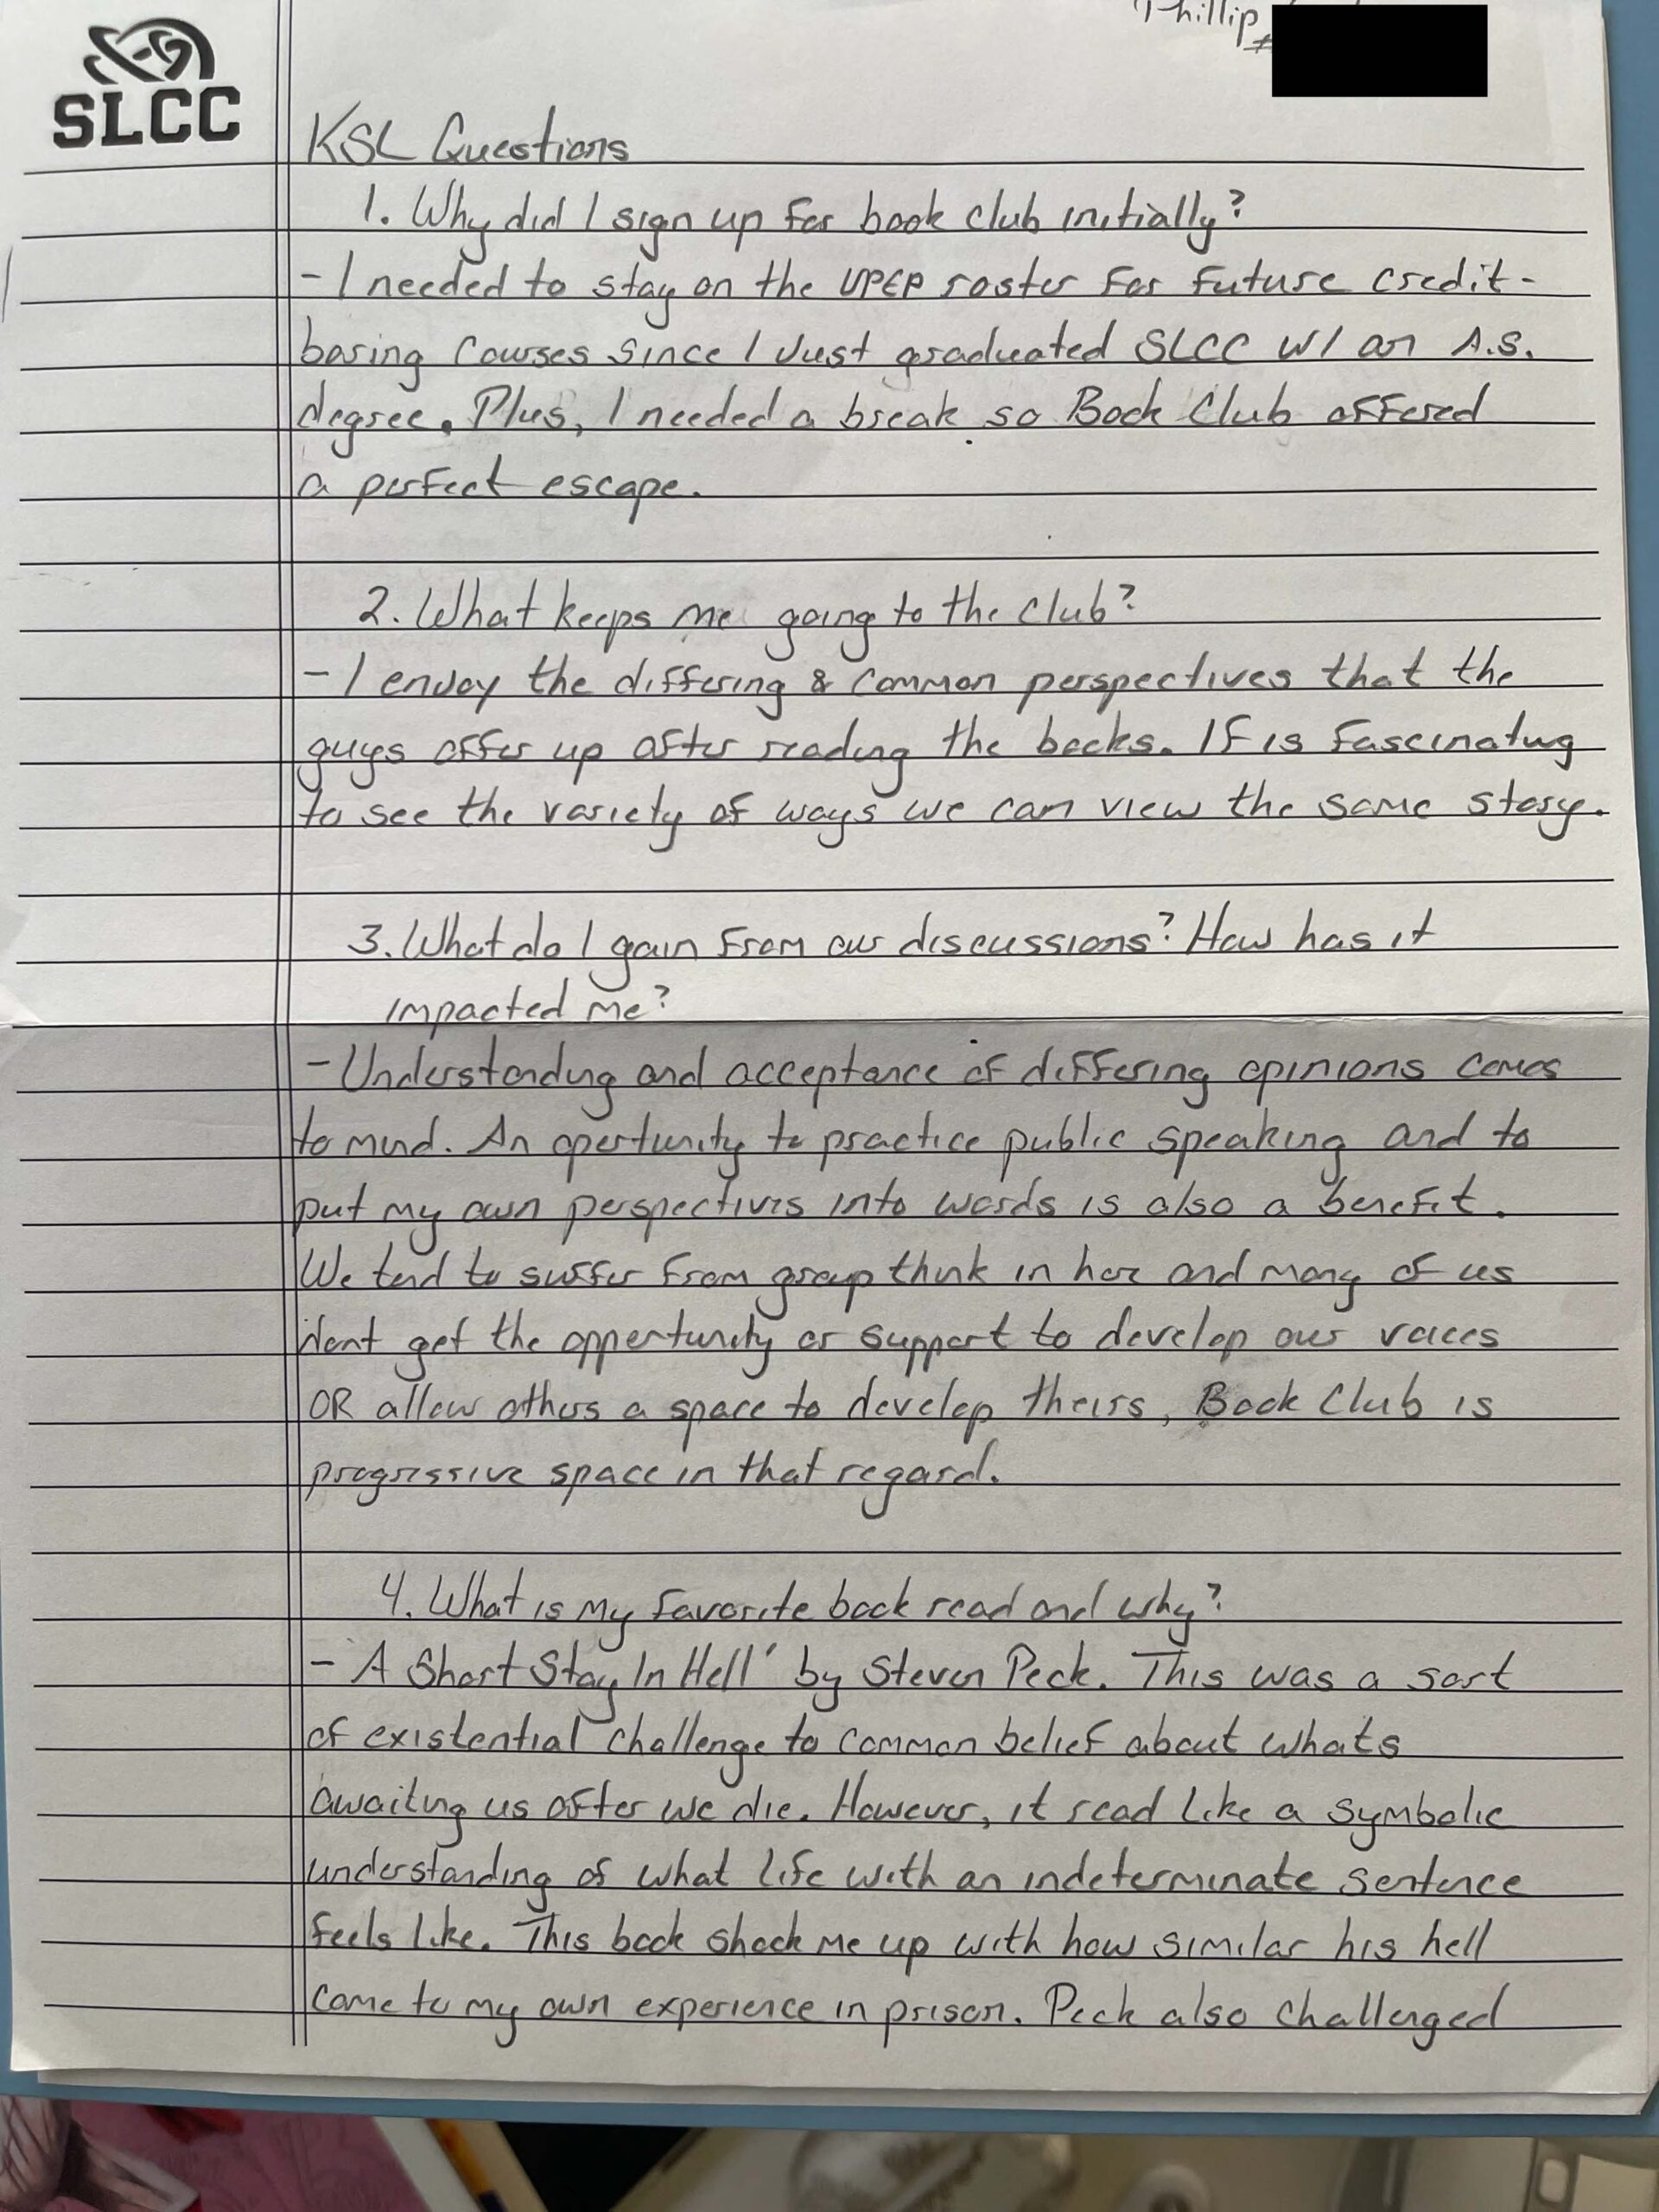 Phillip
#
SLCC
KSL Questions
1. Why did I sign up for book club initially?
- I needed to stay on the UPEP roster for future credit-
baring courses since I Just graduated SLCC w/ an A.S.
degree. Plus, I needed a break so Book Club offered
a perfect escape.
2. What keeps me going to the club?
- I enjoy the differing & common perspectives that the
guys offer up after reading the books. If is fascinating
to see the variety of ways we can view the same story.
3. What do I gain from our discussions? How has it
impacted me?
- Understanding and acceptance of differing opinions comes
to mind. An opertunity to practice public speaking and to
put my own perspectives into words is also a benefit.
We tend to suffer from group think in here and many of us
dont get the oppertunity or support to develop our voices
OR allow others a space to develop theirs, Book Club is
progressive space in that regard.
4. What is my favorite book read and why?
- 'A Short Stay In Hell' by Steven Peck. This was a sort
of existential challenge to common belief about whats
awaiting us after we die. However, it read like a symbolic
understanding of what life with an indeterminate sentence
feels like. This book shook me up with how similar his hell
came to my own experience in prison. Peck also challenged